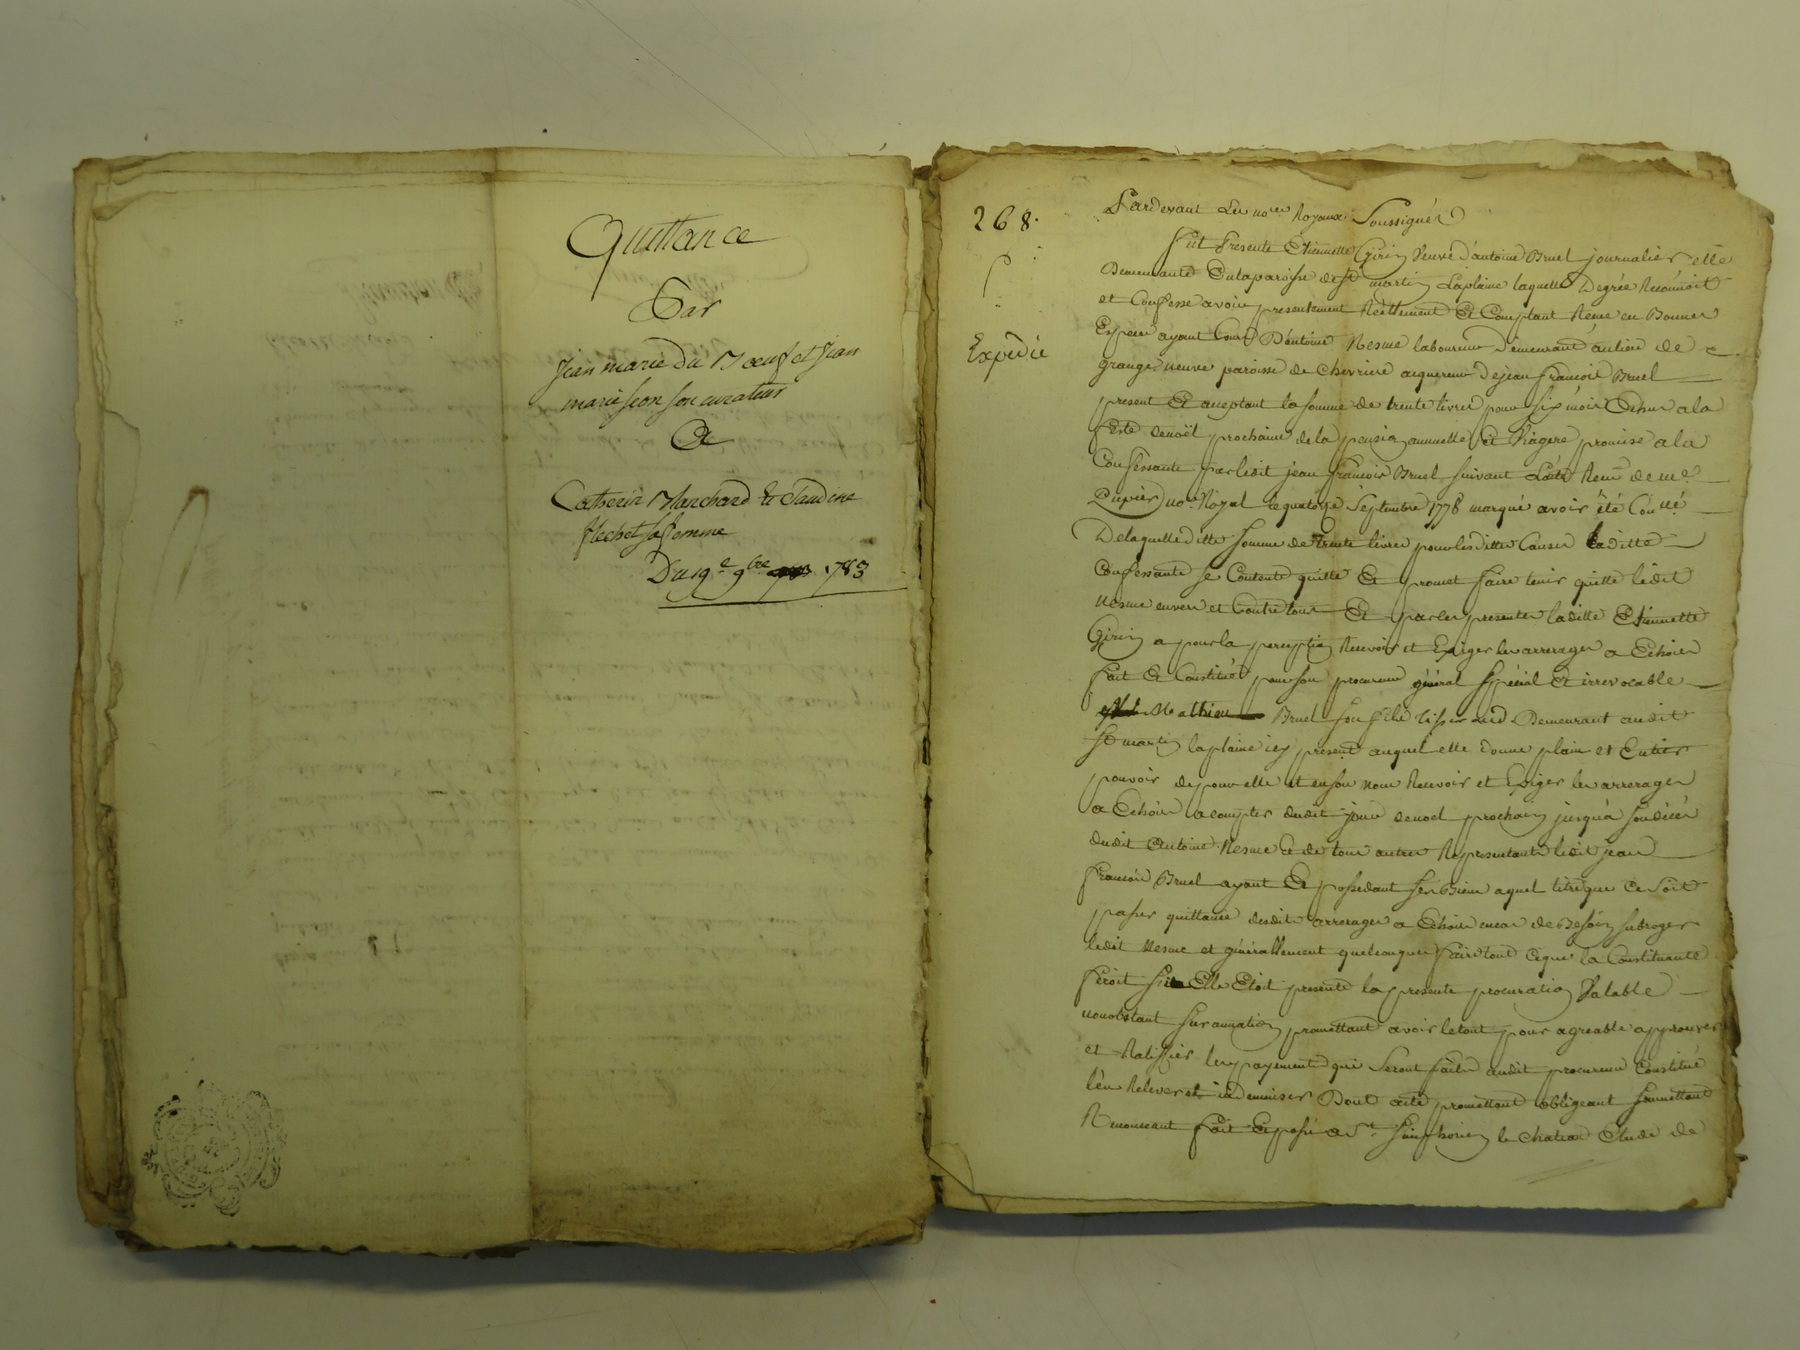 Quittance
Par
Jean marie du Boeuf et Jean
marie son curateur
A
Catherin Marchand Et Claudine
flechet sa femme
Du 19e 9bre 1783
268.
Expédié
Pardevant Les nores Royaux Soussignés
fut Presente Etiennette Girin Veuve d'antoine Bruel journalier elle
Demeurante En la paroisse de st martin Laplaine laquelle De gré a Reconnoit
et Confesse avoir presentement Réellement Et Comptant Recue en Bonnes
Especes ayant Cours D'Antoine Nesme laboureur Demeurant au lieu de
grange neuve paroisse de Chevriere acquereur de jean françois Bruel
present Et acceptant la somme de trente livres pour six mois Echus a la
feste de noël prochaine de la pension annuelle Et Viagere promise a la
Confessante par ledit jean françois Bruel suivant L'acte Recu de me
Dupuier nore Royal le quatorze Septembre 1778 marqué avoir été Con'lé
De laquelle ditte somme de trente livres pour lesdittes Causes laditte
Confessante se Contente quitte Et promet faire tenir quitte ledit
Nesme envers et Contre tous Et par les presentes laditte Etiennette
Girin a pour la perception Recevoir et Exiger les arrerages a Echoir
fait Et Constitué pour son procureur général spécial Et irrevocable
Mathieu Bruel son fils Demeurant audit
st martin laplaine icy present auquel elle donne plain et Entier
pouvoir de pour elle et en son nom Recevoir et Exiger les arrerages
a Echoir a compter dudit jour de noel prochain jusqu'à son décès
dudit Antoine Nesme et de tous autres Representants ledit jean
francois Bruel ayant Et possedant ses Biens a quel titre que ce soit
passer quittance desdits arrerages a Echoir en cas de Besoin subroger
ledit Nesme et générallement quelconques faire tout ce que la Constituante
feroit si Elle Etoit presente la presente procuration Valable
nonobstant surannation promettant avoir le tout pour agreable approuver
et Ratiffier les payements qui seront faits audit procureur Constitué
l'en Relever et indemniser Dont acte promettant obligeant soumettant
Renonceant fait Et passé a st simphorien le chateau Etude de